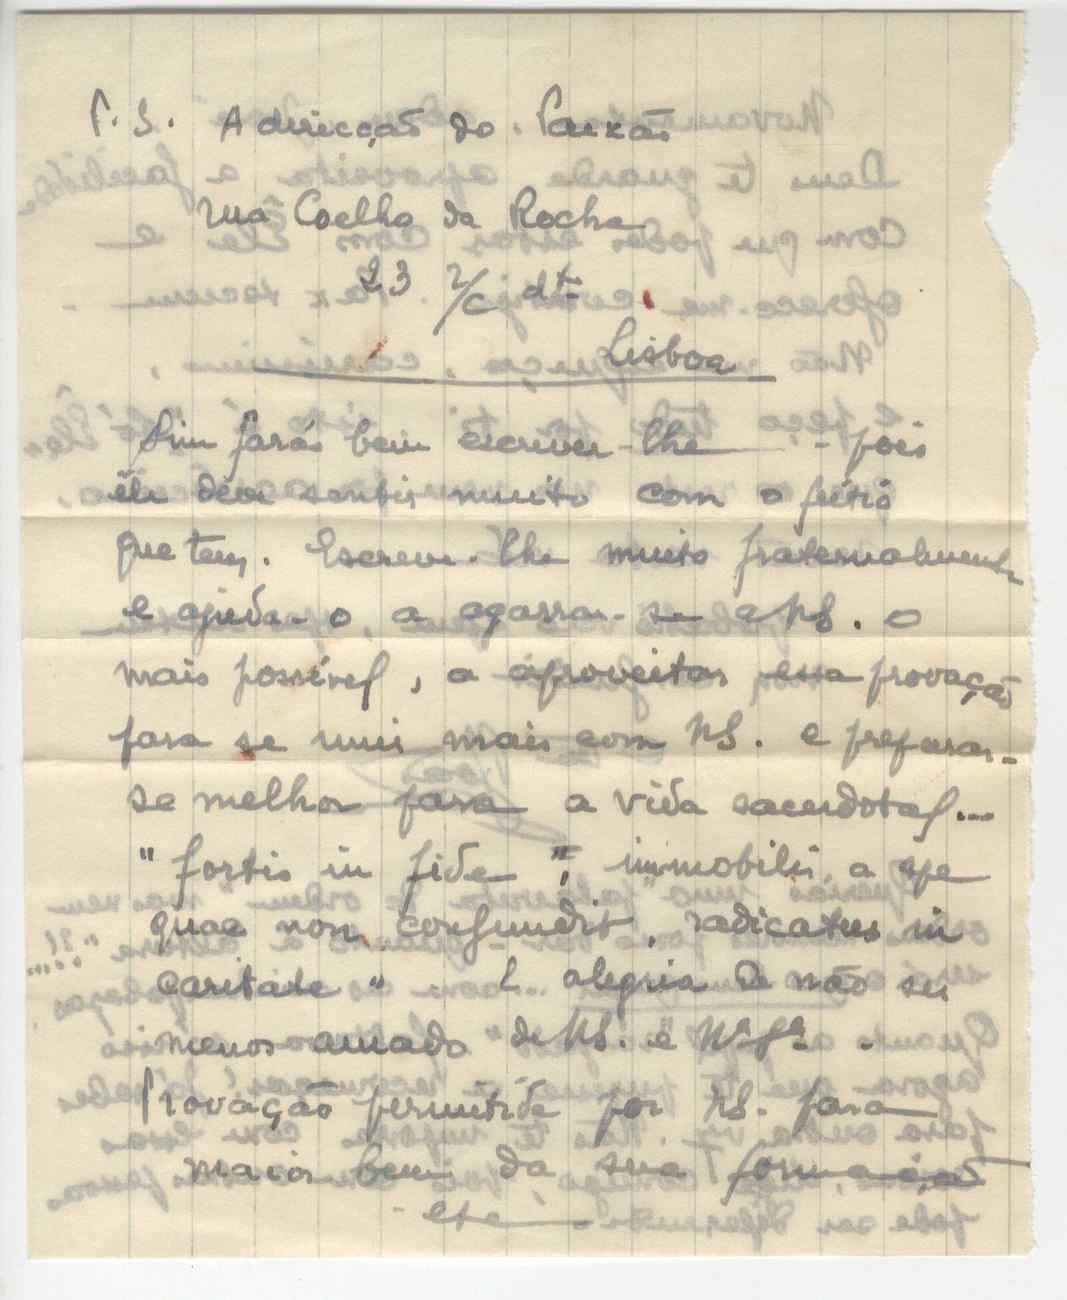 P.S. A direcção do Paixão
Rua Coelho da Rocha
23 r/c dtº
Lisboa
Sim farás bem escrever-lhe — pois
êle deve sentir muito com o feitio
que tem. Escreve-lhe muito fraternalmente
e ajuda-o a agarrar-se a NS. o
mais possível, a aproveitar essa provação
para se unir mais com NS. e preparar-
se melhor para a vida sacerdotal...
"fortis in fide, immobilis a spe
quae non confundit, radicatus in
caritate" alegria de não ser
menos amado de NS. e Nª Sª.
Provação permitida por NS. para
maior bem da sua formação